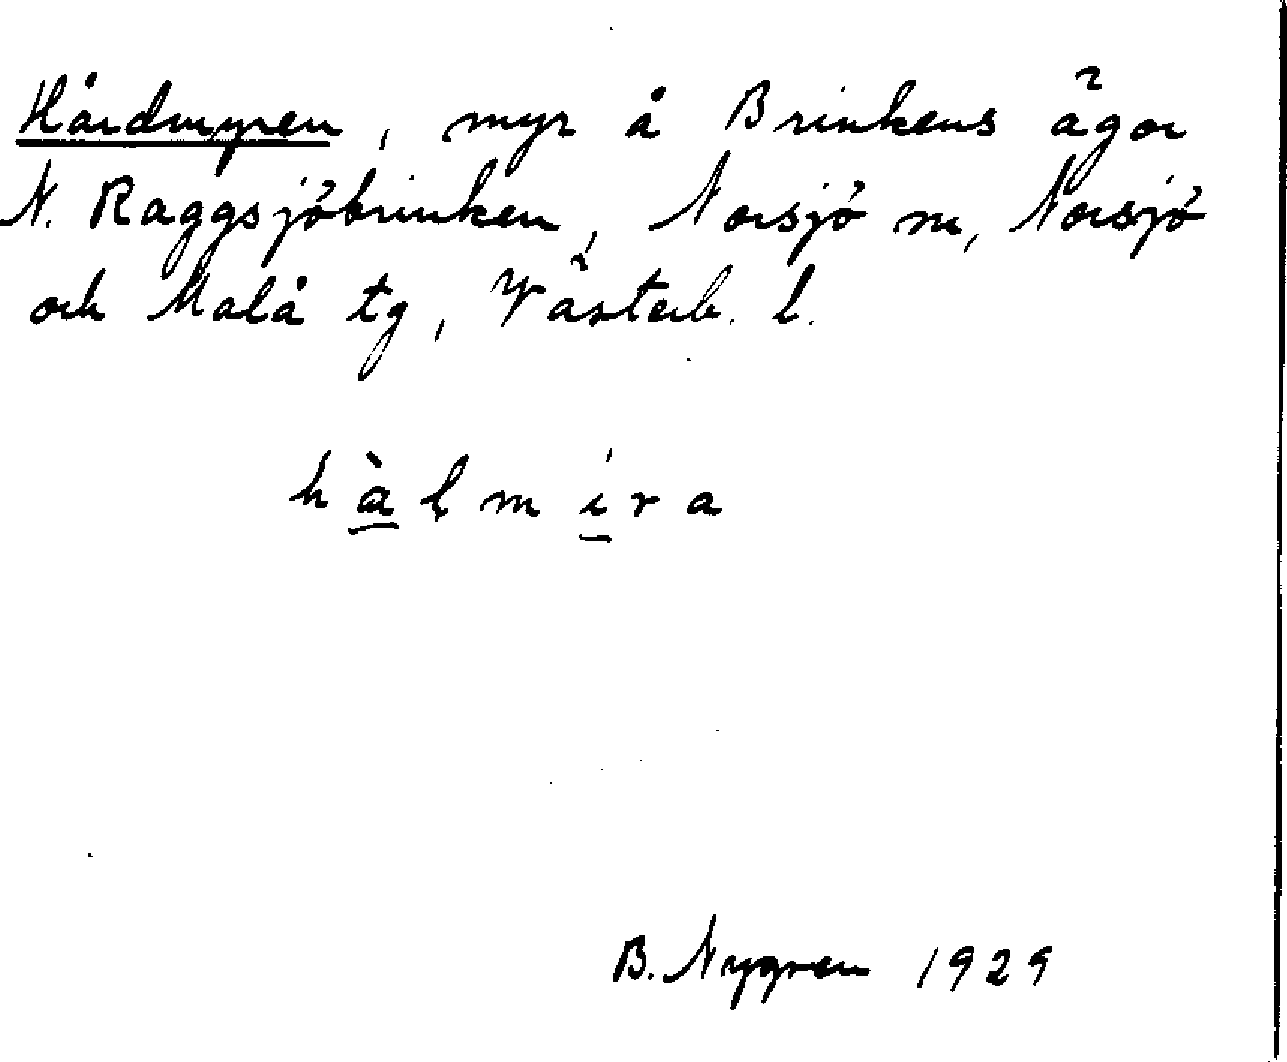 Hårdmyren, myr å Brinkens ägor
N. Raggsjöbrinken, Norsjö sn, Norsjö
och Malå tg, Västerb. l.
hàlmíra
B. Nygren 1929